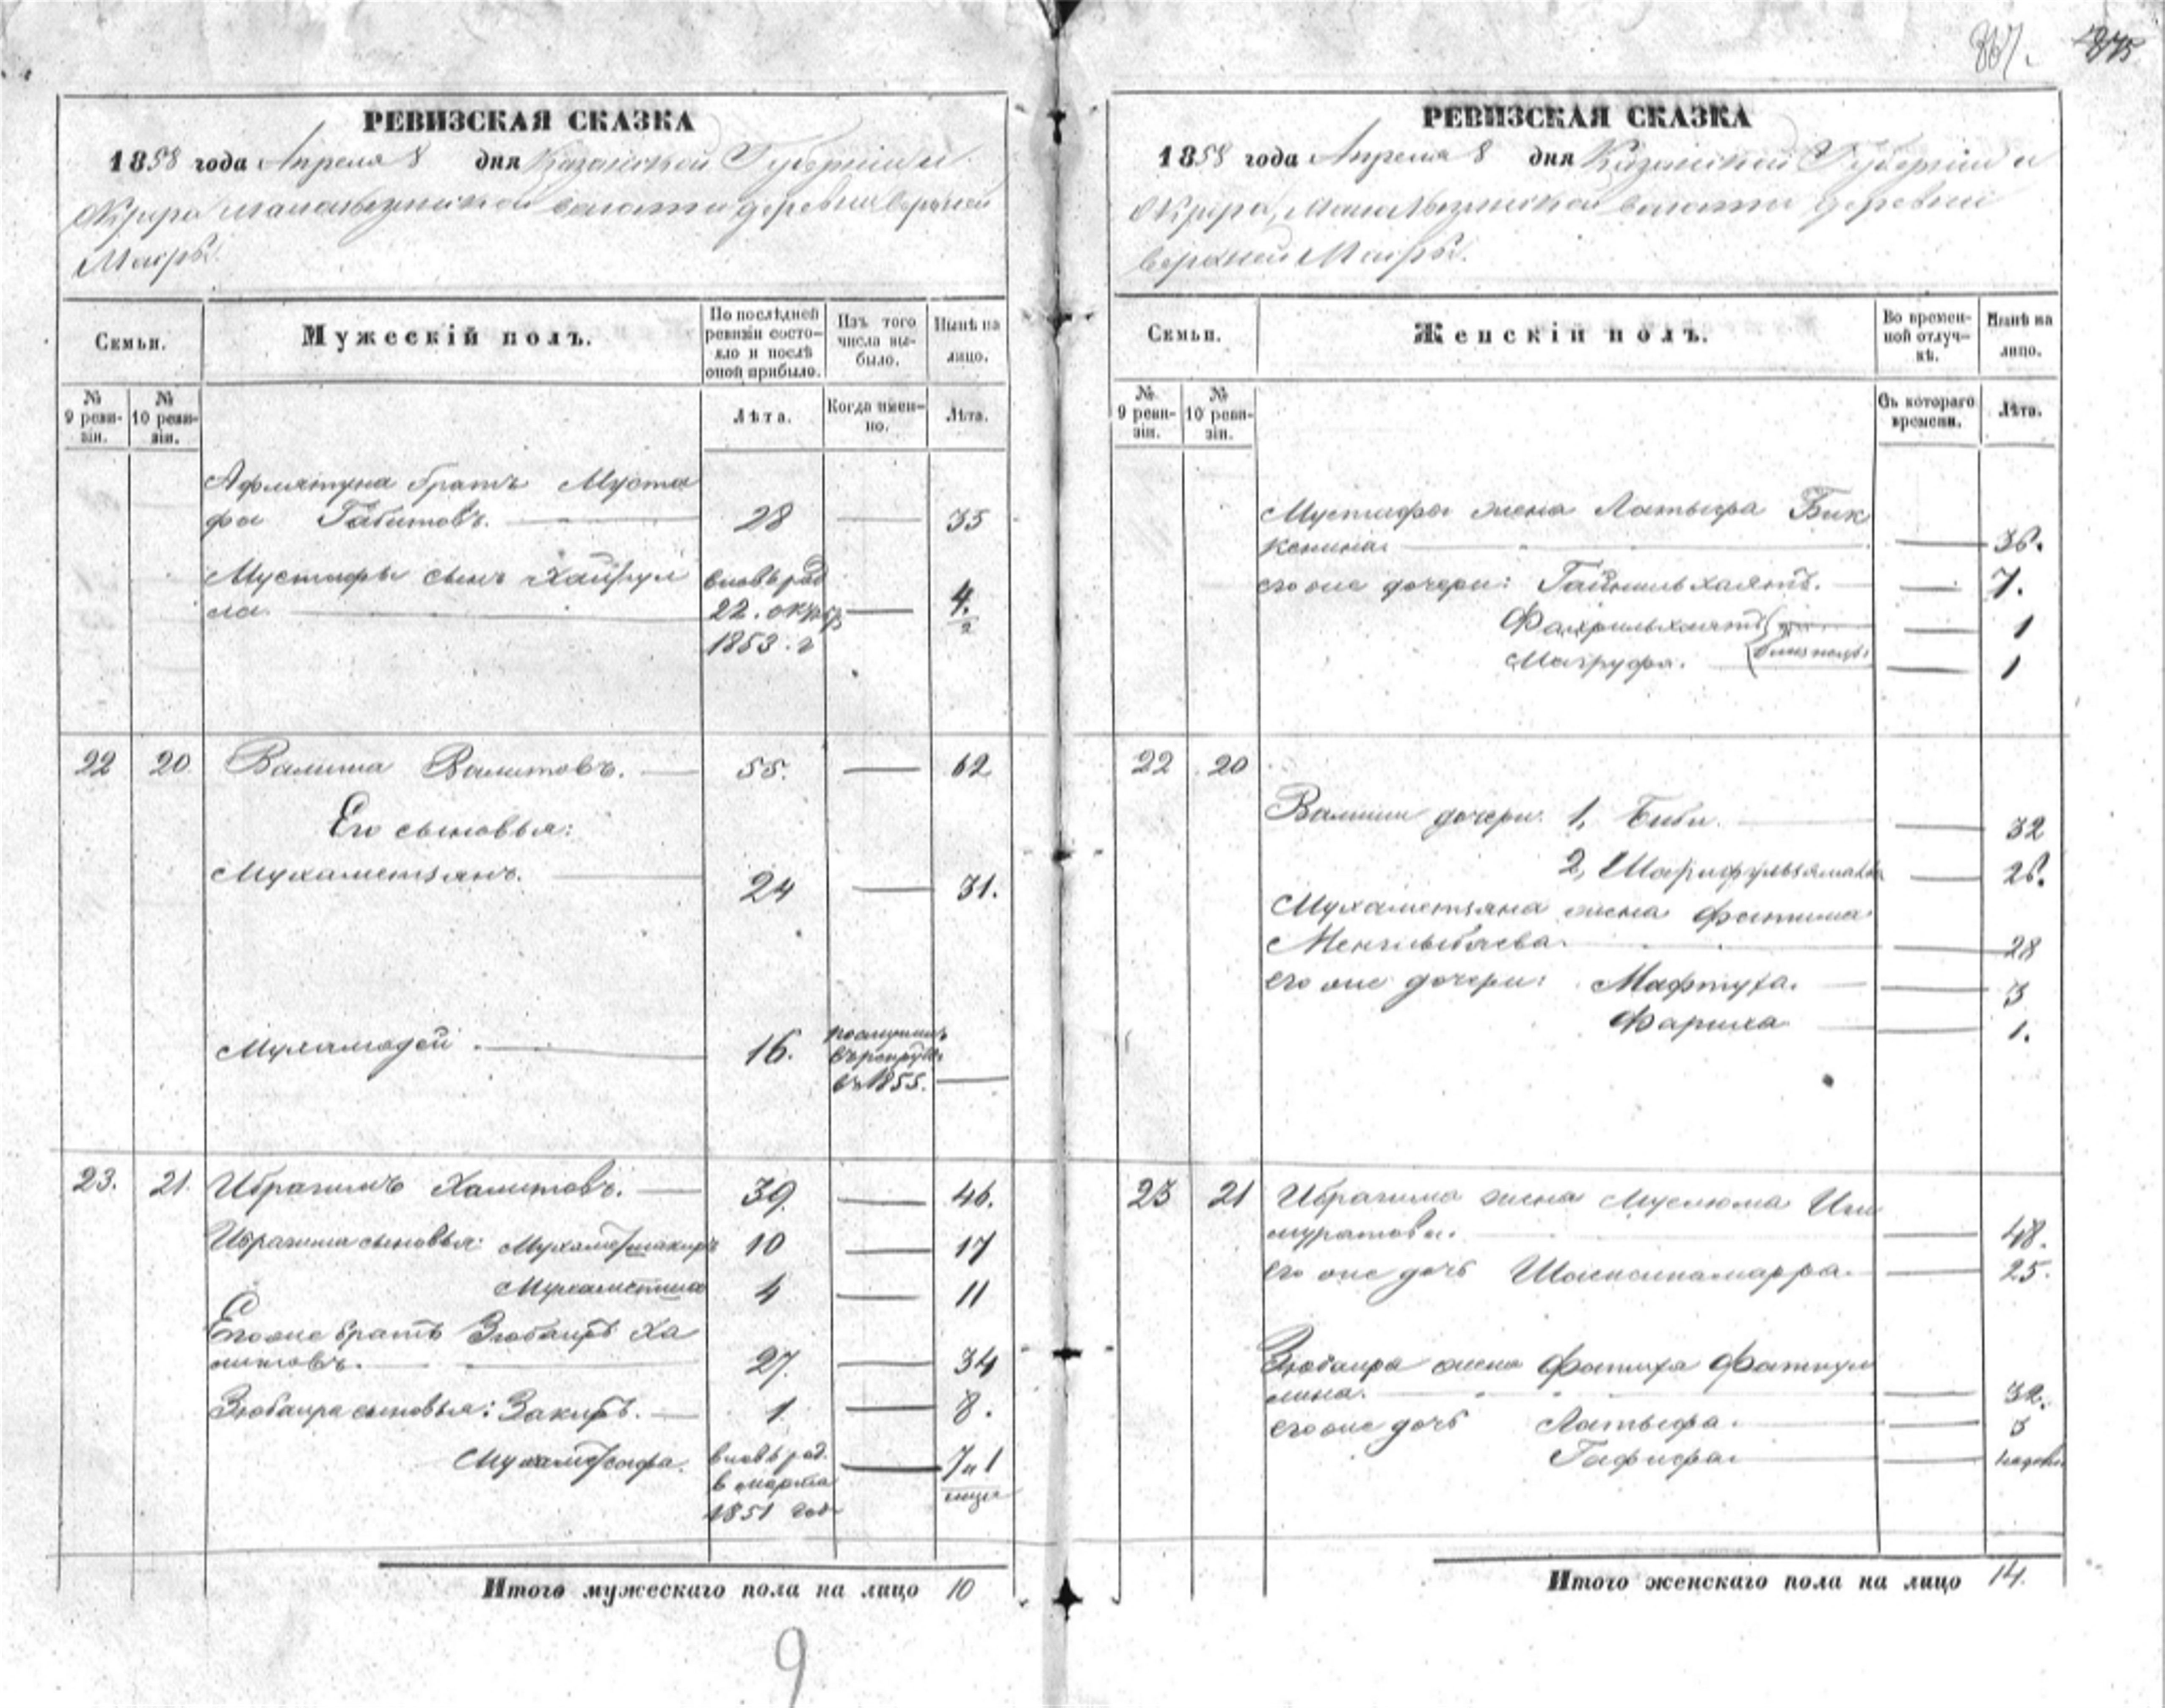 887. 875
РЕВИЗСКАЯ СКАЗКА
1858 года Апреля 8 дня Казанской Губерніи и
Округа волости деревни Верхней
Масры.
Семьи.
Мужескій полъ.
По послѣдней ревизіи состояло и послѣ оной прибыло.
Изъ того числа выбыло.
Нынѣ на лицо.
№ 9 ревизіи.
№ 10 ревизіи.
Лѣта.
Когда именно.
Лѣта.
Афлятуна братъ Муста
фа Габитовъ. 28 — 35
Мустафы сынъ Хайрул
ла. вновь род 22. октяб 1853. г — 4. 1/2
22 20 Валиша Валитовъ. 55. — 62
Его сыновья:
Мухаметзянъ. 24 — 31.
Мухамадей. 16. поступилъ въ рекруты въ 1855. —
23. 21 Ибрагимъ Халитовъ. 39. — 46.
Ибрагима сыновья: Мухаметшакиръ 10 — 17
Мухаметша 4 — 11
Его же братъ Зюбаиръ Ха
литовъ. 27. — 34
Зюбаира сыновья: Закиръ. 1 — 8.
Мухаметсафа. вновь род. в марта 1851 год — 7 и 1
Итого мужескаго пола на лицо 10
9
РЕВИЗСКАЯ СКАЗКА
1858 года Апреля 8 дня Казанской Губерніи и
Округа, волости деревни
Верхней Масры.
Семьи.
Женскій полъ.
Во временной отлучкѣ.
Нынѣ на лицо.
№ 9 ревизіи.
№ 10 ревизіи.
Съ котораго времени.
Лѣта.
Мустафы жена Латыфа Бик
кенина. — 36.
его же дочери: Гайнильхаятъ. — 7.
Фахрильхаятъ — 1
Магруфа. близнецы — 1
22 20
Валиши дочери 1, Биби. — 32
2, Шарифульзямал — 26.
Мухаметзяна жена Фатима
Менглыбаева. — 28
его же дочери: Мафтуха. — 3
Фариха — 1.
23 21 Ибрагима жена Муслюма Иш
муратова. — 48.
его же дочь Шамсикамарра. — 25.
Зюбаира жена Фатиха Фаткул
лина. — 32.
его же дочь Латыфа. — 5
Гафифа — недель
Итого женскаго пола на лицо 14.